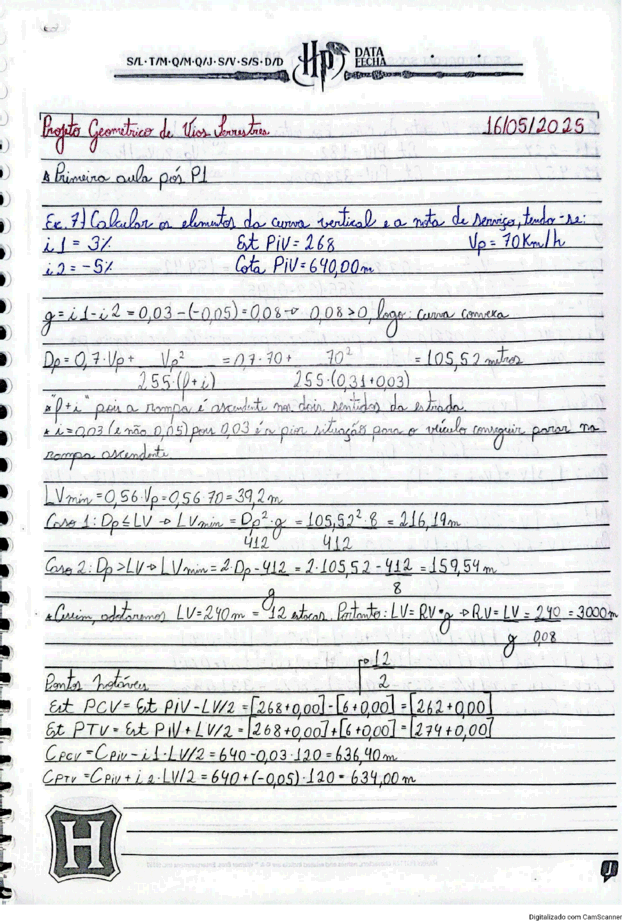 S/L·T/M·Q/M·Q/J·S/V·S/S·D/D Hp DATA FECHA
Projeto Geométrico de Vias Terrestres 16/05/2025
Primeira aula pós P1
Ex. 7) Calcular os elementos da curva vertical e a nota de serviço, tendo-se:
i1 = 3% Est PIV = 268 Vp = 70Km/h
i2 = -5% Cota PIV = 640,00m
g = i1 - i2 = 0,03 - (-0,05) = 0,08 → 0,08 > 0, logo: curva convexa
Dp = 0,7·Vp + Vp² = 0,7·70 + 70² = 105,52 metros
255·(f+i) 255·(0,31+0,03)
* "f+i" pois a rampa é ascendente nos dois sentidos da estrada.
* i = 0,03 (e não 0,05) pois 0,03 é a pior situação para o veículo conseguir parar na
rampa ascendente.
LVmin = 0,56·Vp = 0,56·70 = 39,2m
Caso 1: Dp ≤ LV → LVmin = Dp²·g = 105,52²·8 = 216,19m
412 412
Caso 2: Dp > LV → LVmin = 2·Dp - 412 = 2·105,52 - 412 = 159,54m
g 8
* Assim, adotaremos LV = 240m = 12 estacas. Portanto: LV = RV·g → RV = LV = 240 = 3000m
g 0,08
12
2
Pontos Notáveis
Est PCV = Est PIV - LV/2 = [268+0,00] - [6+0,00] = [262+0,00]
Est PTV = Est PIV + LV/2 = [268+0,00] + [6+0,00] = [274+0,00]
CPCV = CPIV - i1·LV/2 = 640 - 0,03·120 = 636,40m
CPTV = CPIV + i2·LV/2 = 640 + (-0,05)·120 = 634,00m
H
Digitalizado com CamScanner